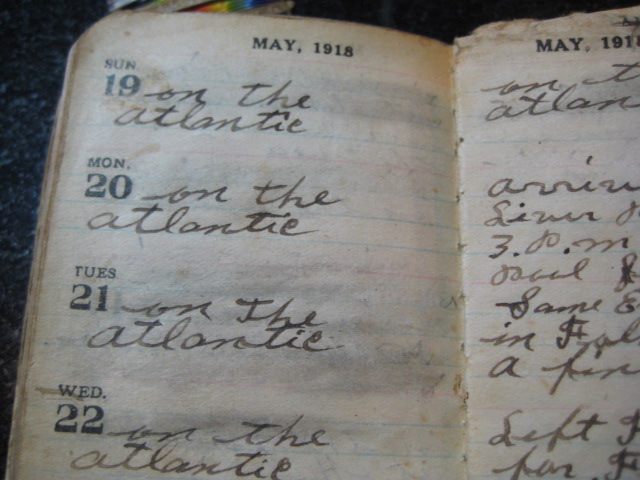 MAY, 1918
SUN.
19 on the
atlantic
MON.
20 on the
atlantic
TUES
21 on the
atlantic
WED.
22 on the
atlantic
MAY, 191
on t
atlan
arriv
3.P.m
Same E
in F
a fin
Left F
for F